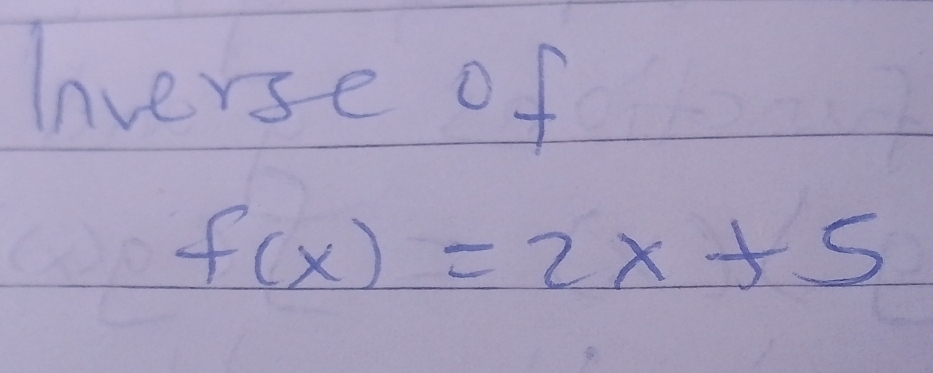 Inverse of
f(x) = 2x + 5